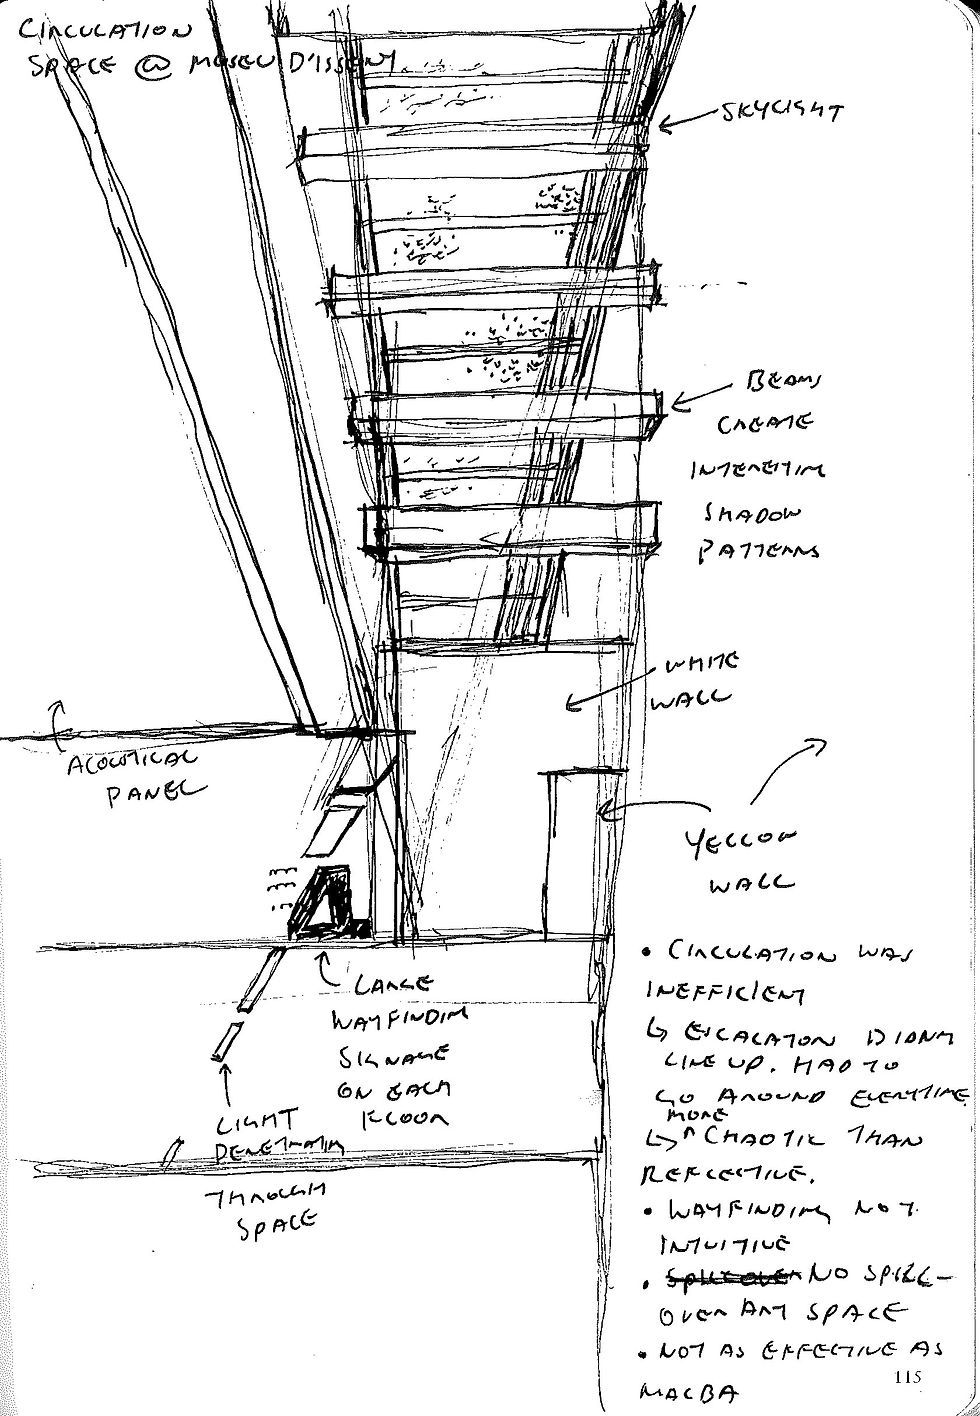 CIRCULATION
SPACE @ MUSEU D'ISSENY
SKYLIGHT
BEAMS
CREATE
INTERESTIN
SHADOW
PATTERNS
WHITE
WALL
ACOUSTICAL
PANEL
YELLOW
WALL
LARGE
WAYFINDIN
SIGNAGE
ON EACH
FLOOR
LIGHT
PENETRATIN
THROUGH
SPACE
• CIRCULATION WAS
INEFFICIENT
↳ ESCALATOR DIDNT
LINE UP. HAD TO
GO AROUND EVERYTIME
MORE
↳ ^ CHAOTIC THAN
REFLECTIVE.
• WAYFINDING NOT
INTUITIVE
• NO SPILL-
OVER ART SPACE
• NOT AS EFFECTIVE AS
MACBA
115